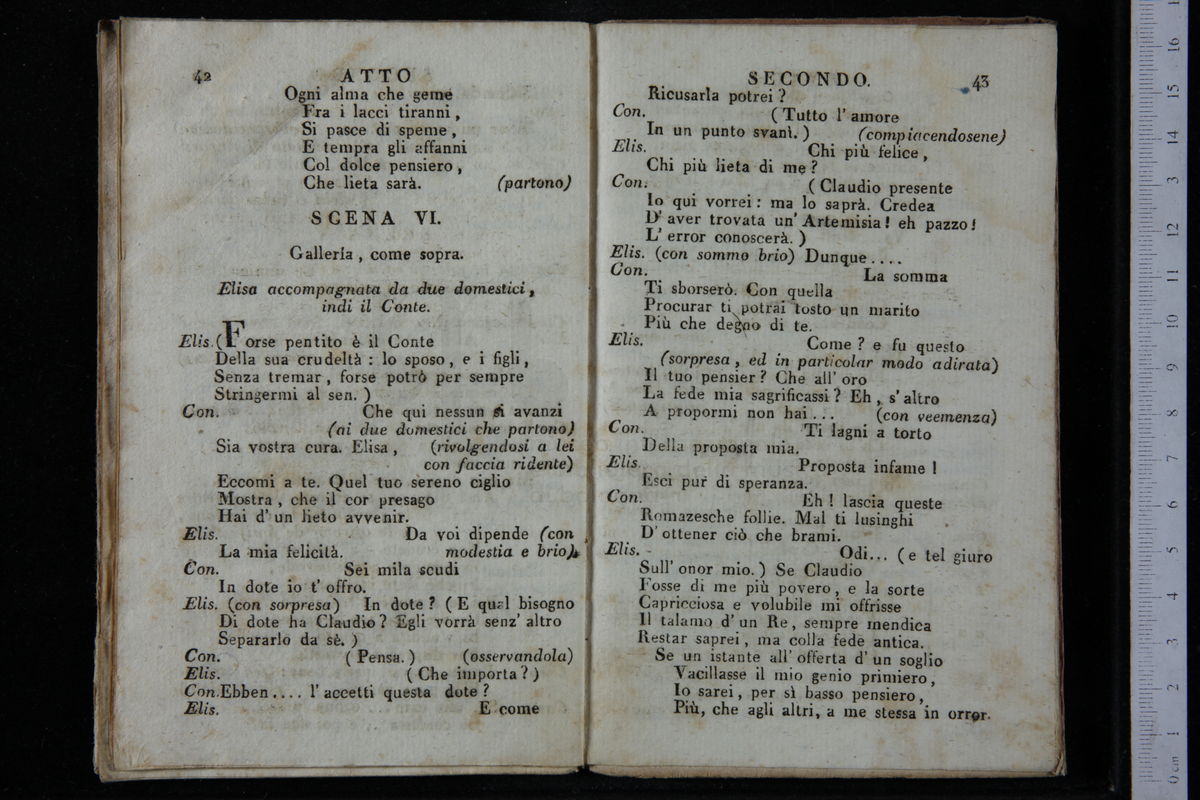 42
ATTO
Ogni alma che geme
Fra i lacci tiranni,
Si pasce di speme,
E tempra gli affanni
Col dolce pensiero,
Che lieta sarà. (partono)
SCENA VI.
Gallería, come sopra.
Elisa accompagnata da due domestici,
indi il Conte.
Elis. (Forse pentito è il Conte
Della sua crudeltà: lo sposo, e i figli,
Senza tremar, forse potrò per sempre
Stringermi al sen.)
Con. Che qui nessun si avanzi
(ai due domestici che partono)
Sia vostra cura. Elisa, (rivolgendosi a lei
con faccia ridente)
Eccomi a te. Quel tuo sereno ciglio
Mostra, che il cor presago
Hai d'un lieto avvenir.
Elis. Da voi dipende (con
La mia felicità. modestia e brio)
Con. Sei mila scudi
In dote io t'offro.
Elis. (con sorpresa) In dote? (E qual bisogno
Di dote ha Claudio? Egli vorrà senz'altro
Separarlo da sè.)
Con. (Pensa.) (osservandola)
Elis. (Che importa?)
Con. Ebben.... l'accetti questa dote?
Elis. E come
SECONDO. 43
Ricusarla potrei?
Con. (Tutto l'amore
In un punto svanì.) (compiacendosene)
Elis. Chi più felice,
Chi più lieta di me?
Con. (Claudio presente
Io qui vorrei: ma lo saprà. Credea
D'aver trovata un'Artemisia! eh pazzo!
L'error conoscerà.)
Elis. (con sommo brio) Dunque....
Con. La somma
Ti sborserò. Con quella
Procurar ti potrai tosto un marito
Più che degno di te.
Elis. Come? e fu questo
(sorpresa, ed in particolar modo adirata)
Il tuo pensier? Che all'oro
La fede mia sagrificassi? Eh, s'altro
A propormi non hai... (con veemenza)
Con. Ti lagni a torto
Della proposta mia.
Elis. Proposta infame!
Esci pur di speranza.
Con. Eh! lascia queste
Romazesche follie. Mal ti lusinghi
D'ottener ciò che brami.
Elis. Odi... (e tel giuro
Sull'onor mio.) Se Claudio
Fosse di me più povero, e la sorte
Capricciosa e volubile mi offrisse
Il talamo d'un Re, sempre mendica
Restar saprei, ma colla fede antica.
Se un istante all'offerta d'un soglio
Vacillasse il mio genio primiero,
Io sarei, per sì basso pensiero,
Più, che agli altri, a me stessa in orror.